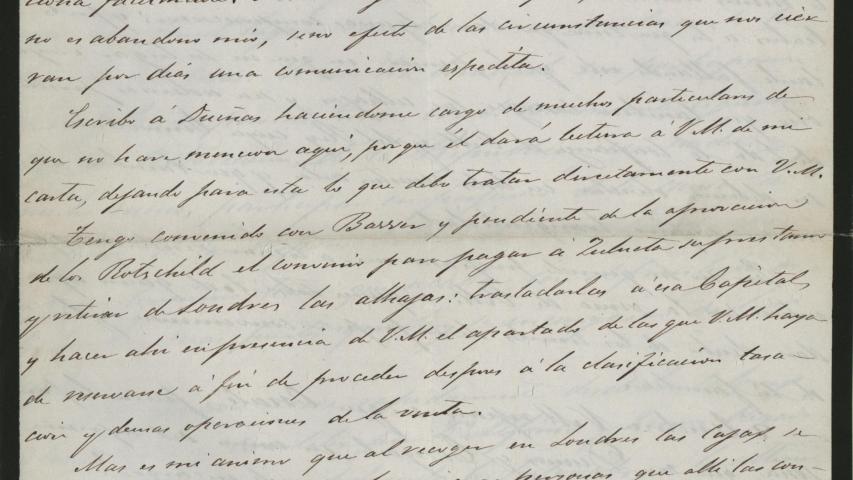 no es abandono mio, sino efecto de las circunstancias que nos cier
ran por dias una comunicacion espedita.
Escribo á Dueñas haciendome cargo de muchos particulares de
que no hare mencion aqui, porque él dará lectura á V.M. de mi
carta, dejando para esta lo que debo tratar directamente con V.M.
Tengo convenido con Baver y pendiente de la aprovacion
de los Rotschild el convenio para pagar á Zulueta su prestamo
y retirar de Londres las alhajas: trasladarlas á esa Capital,
y hacer ahi en presencia de V.M. el apartado de las que V.M. haya
de reservarse á fin de proceder despues á la clasificacion tasa-
cion y demas operaciones de la venta.
Mas es mi animo que al recoger en Londres las Cajas se
personas que alli las con-